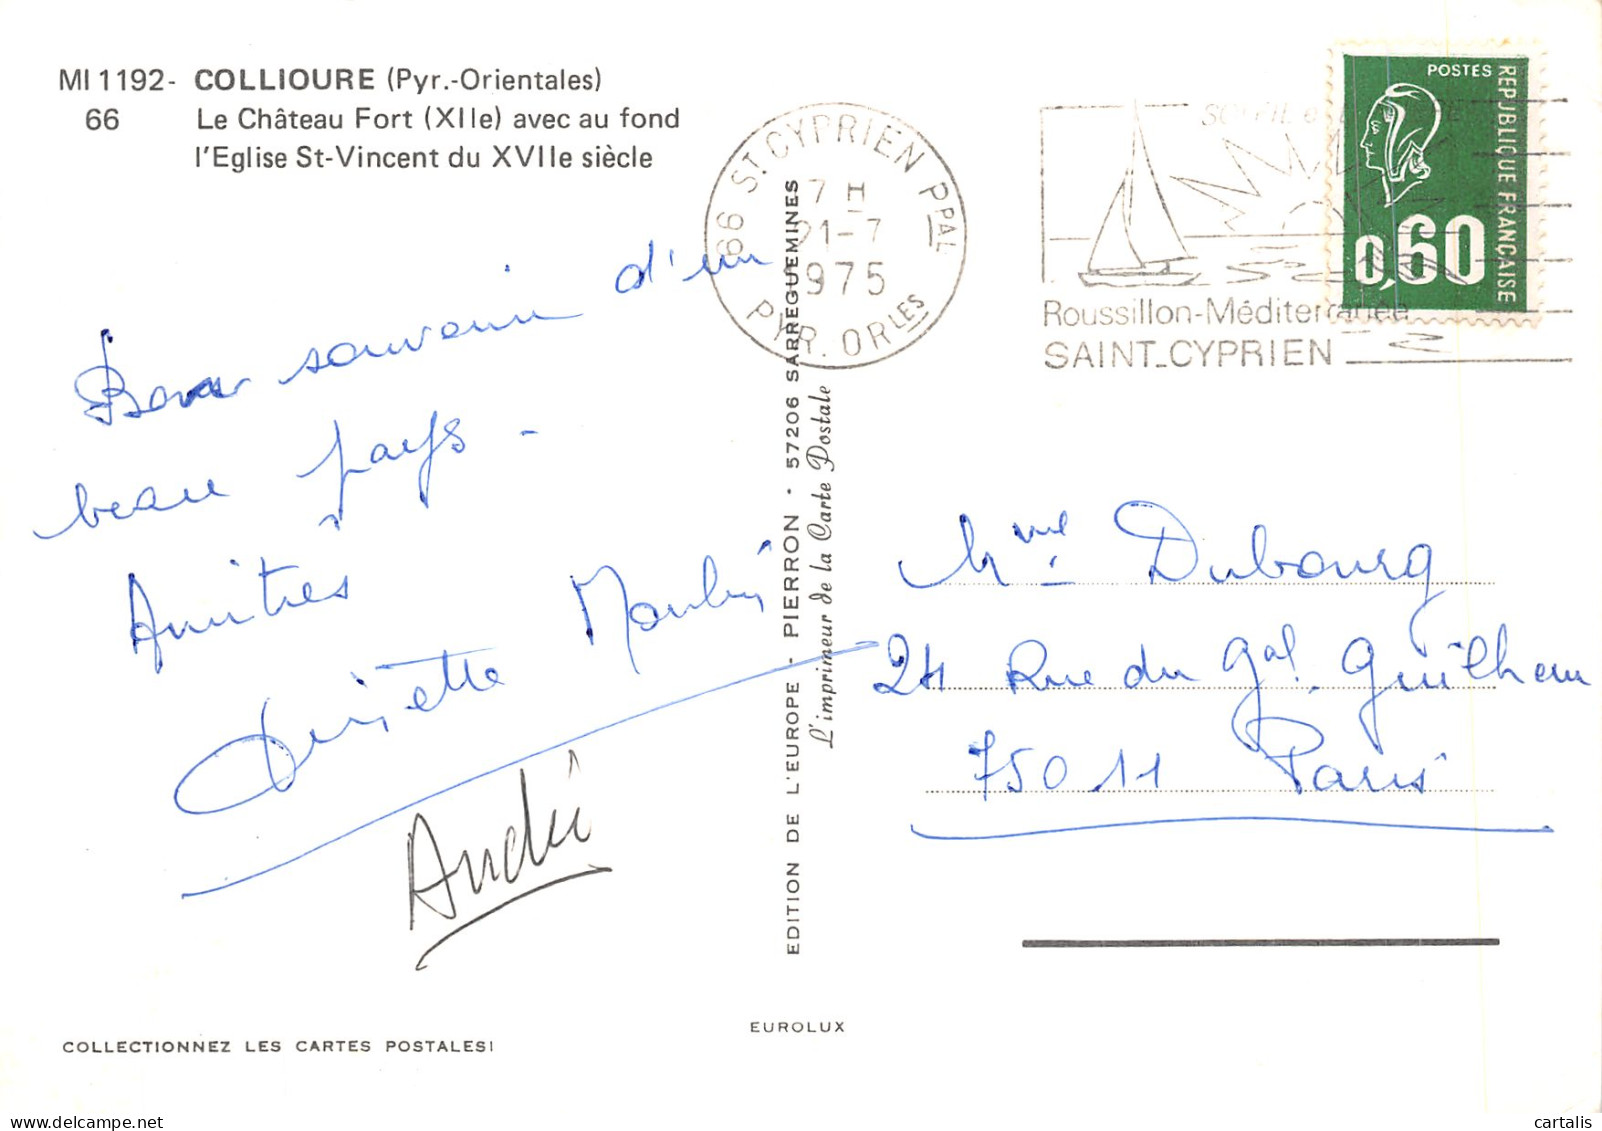 MI 1192- COLLIOURE (Pyr.-Orientales)
66 Le Château Fort (XIIe) avec au fond
l'Eglise St-Vincent du XVIIe siècle
66 ST CYPRIEN PPAL
7 H
21-7
1975
PYR. ORLES
Roussillon-Méditerranée
SAINT-CYPRIEN
POSTES
REPUBLIQUE FRANÇAISE
0,60
Bon souvenir d'un
beau pays -
Amitiés
Moulin
André
EDITION DE L'EUROPE - PIERRON - 57206 SARREGUEMINES
L'imprimeur de la Carte Postale
Mme Dubourg
24 Rue du Gal. Guilhem
75011 Paris
EUROLUX
COLLECTIONNEZ LES CARTES POSTALES!
delcampe.net
cartalis